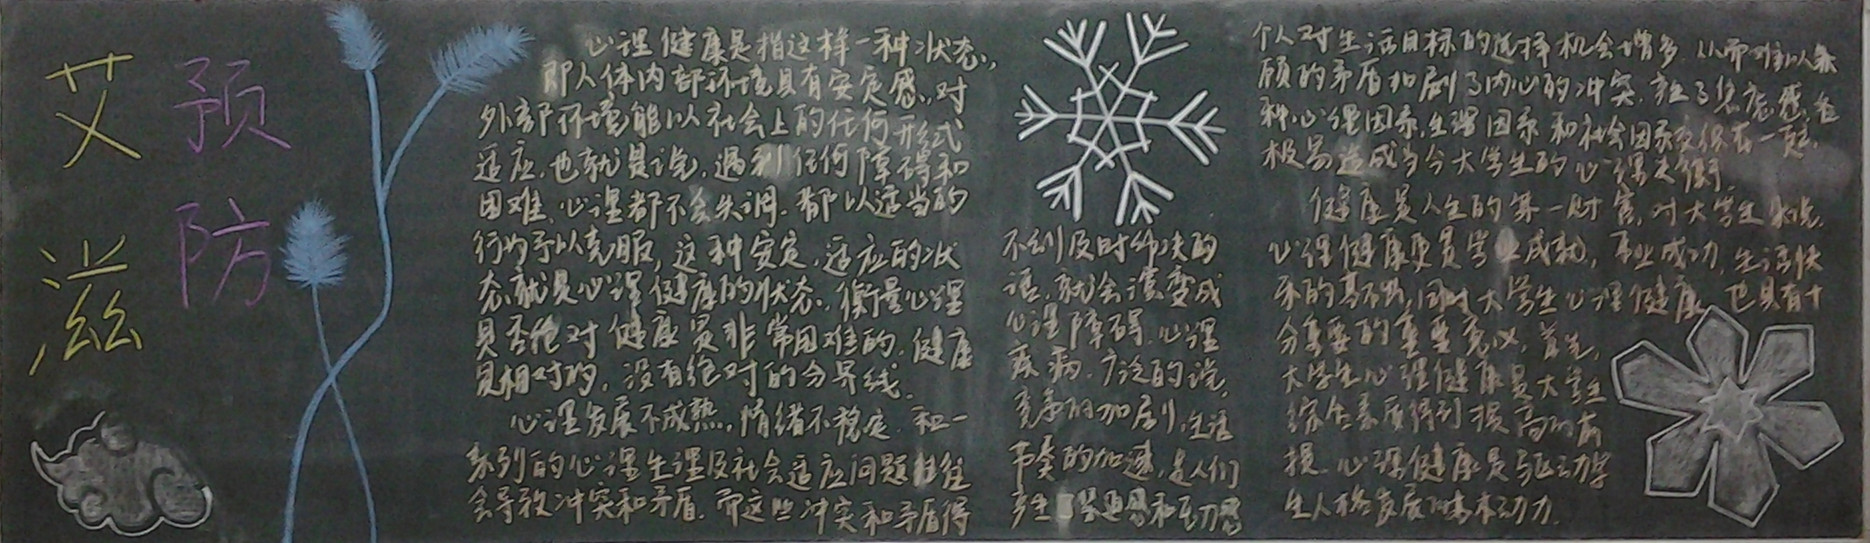 预防
艾滋
心理健康是指这样一种状态,
即人体内部环境具有安定感,对
外部环境能以社会上的任何形式
适应,也就是说,遇到任何障碍和
困难,心理都不会失调,都以适当的
行为予以克服,这种安定、适应的状
态就是心理健康的状态,衡量心理
是否绝对健康是非常困难的,健康
是相对的,没有绝对的分界线.
心理发展不成熟,情绪不稳定,和一
系列的心理生理及社会适应问题往往
会导致冲突和矛盾.而这些冲突和矛盾得
不到及时解决的
话,就会演变成
心理障碍、心理
疾病,广泛的说,
竞争的加剧,生活
节奏的加速,是人们
产生 紧迫感和压力感
个人对生活目标的选择机会增多,从而
愿的矛盾加剧了内心的冲突,产生了焦虑感,各
种心理因素,生理因素和社会因素交织在一起,
极易造成当今大学生的心理失衡.
健康是人生的第一财富,对大学生来说,
心理健康更是学业成就,事业成功,生活快
乐的基础,同时大学生心理健康 也具有十
分重要的重要意义,首先,
大学生心理健康是大学生
综合素质得到提高的前
提.心理健康是驱动学
生人格发展的基本动力.